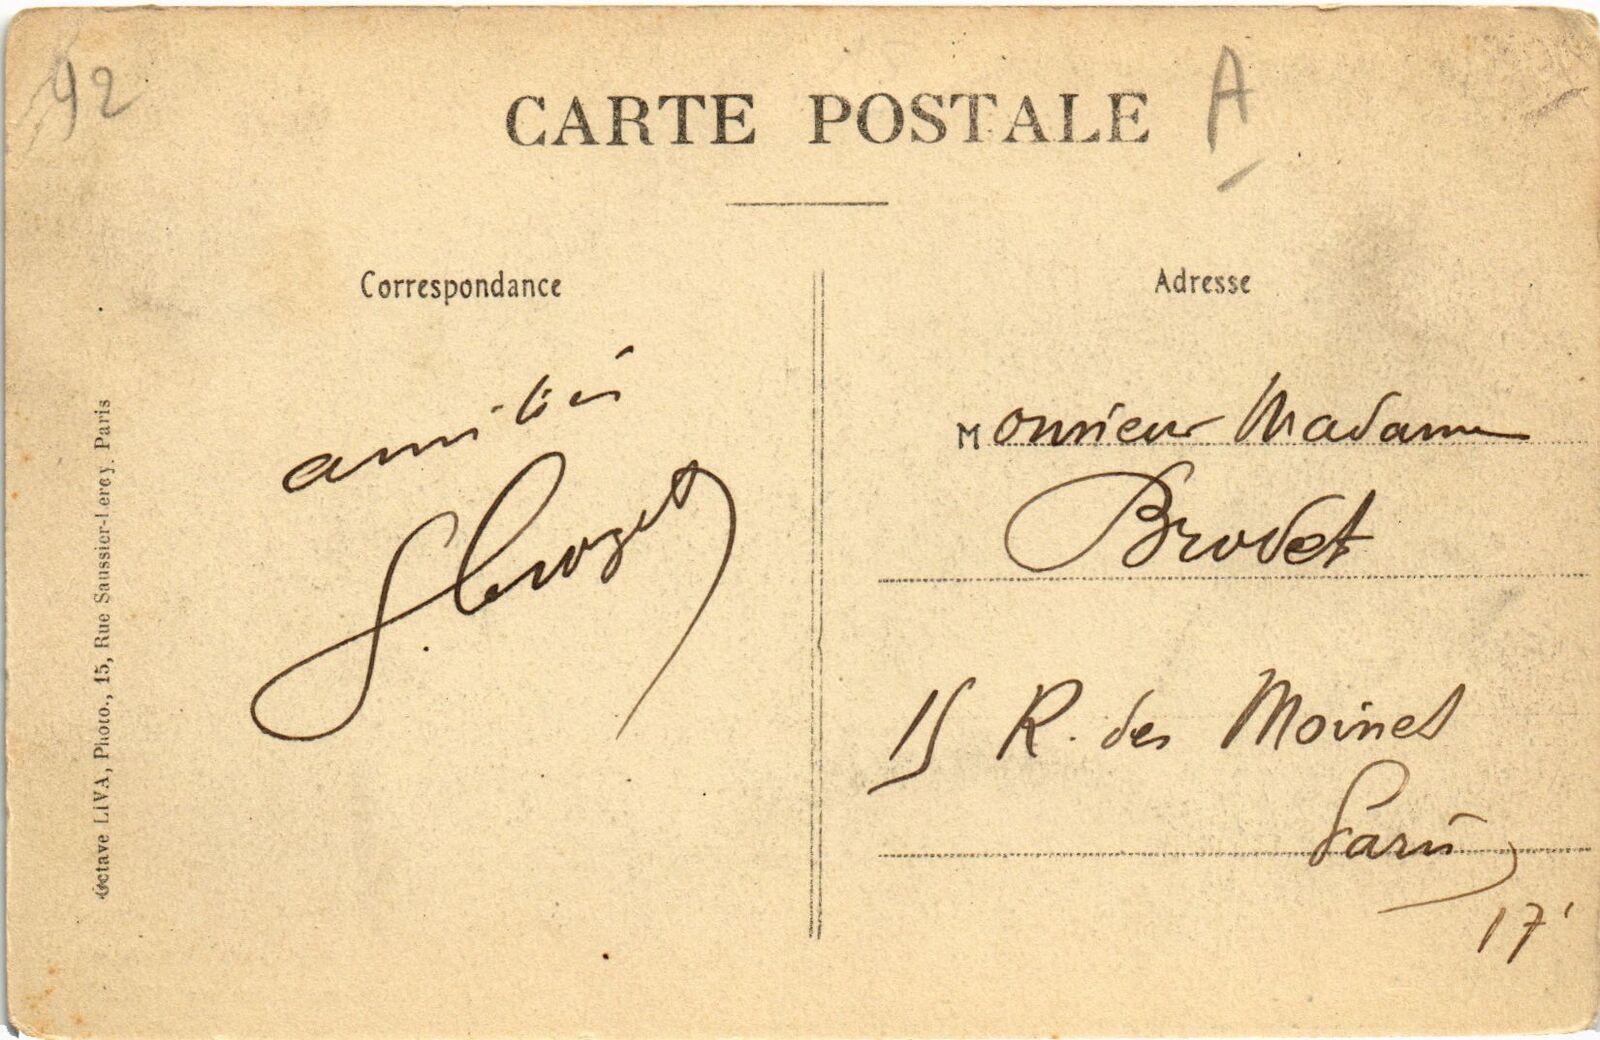 92
CARTE POSTALE
A
Correspondance
amitiés
Octave LIVA, Photo., 15, Rue Saussier-Leroy, Paris
Adresse
Monsieur Madame
Brodet
15 R. des Moines
Paris
17'